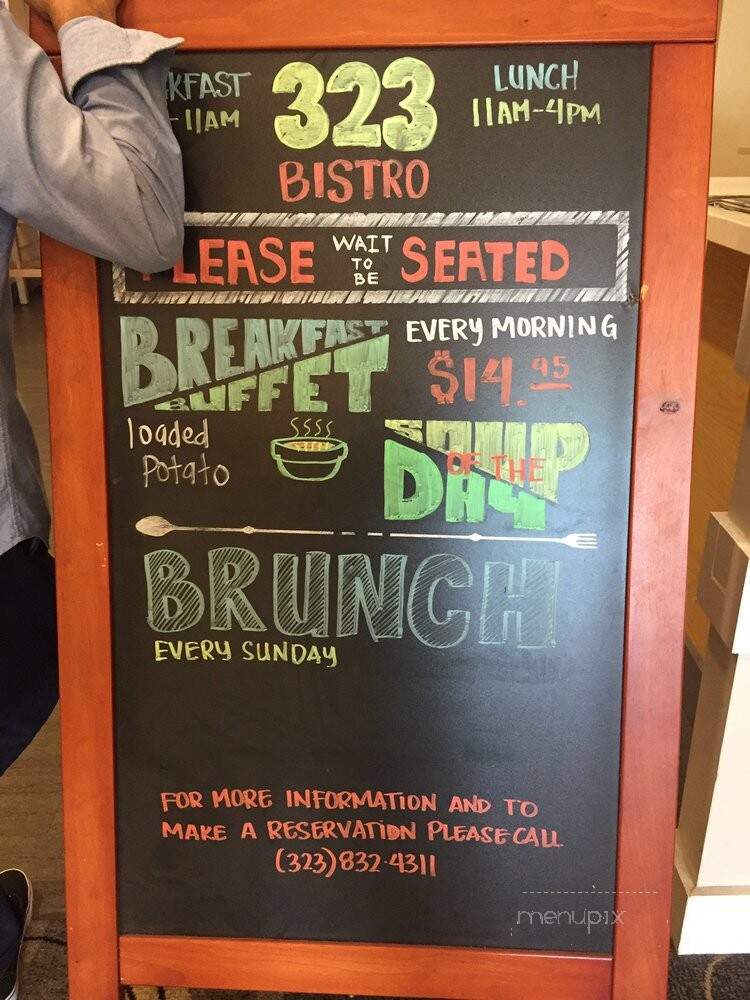 KFAST 323 LUNCH
-11AM 11AM-4PM
BISTRO
PLEASE WAIT TO BE SEATED
BREAKFAST EVERY MORNING
BUFFET $14.95
loaded SOUP
Potato OF THE
DAY
BRUNCH
EVERY SUNDAY
FOR MORE INFORMATION AND TO
MAKE A RESERVATION PLEASE CALL
(323)832-4311
menupix